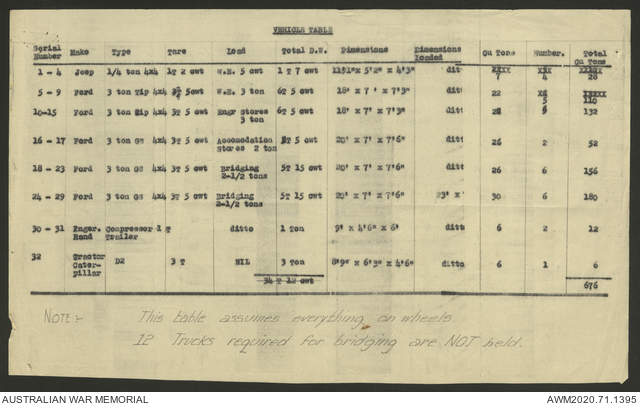 VEHICLE TABLE
Serial Number Make Type Tare Load Total D.W. Dimensions Dimensions Loaded Qu Tons Number. Total Qu Tons
1 - 4 Jeep 1/4 ton 4x4 1T 2 cwt W.E. 5 cwt 1 T 7 cwt 11'1"x 5'2" x 4'3" ditt 7 4 28
5 - 9 Ford 3 ton Tip 4x4 3T 5cwt W.E. 3 ton 6T 5 cwt 18' x 7' x 7'3" ditt 22 5 110
10-15 Ford 3 ton Tip 4x4 3T 5 cwt Engr Stores 3 ton 6T 5 cwt 18' x 7' x 7'3" ditt 132
16 - 17 Ford 3 ton GS 4x4 3T 5 cwt Accomodation Stores 2 ton 5T 5 cwt 20' x 7' x 7'6" ditt 26 2 52
18 - 23 Ford 3 ton GS 4x4 3T 5 cwt Bridging 2-1/2 tons 5T 15 cwt 20' x 7' x 7'6" ditt 26 6 156
24 - 29 Ford 3 ton GS 4x4 3T 5 cwt Bridging 2-1/2 tons 5T 15 cwt 20' x 7' x 7'6" 23' x 30 6 180
30 - 31 Enger. Rand Compressor 1 T Trailer ditto 1 Ton 9' x 4'6" x 6' ditto 6 2 12
32 Tractor Caterpillar D2 3 T NIL 3 Ton 8'9" x 6'3" x 4'6" ditto 6 1 6
34 T 12 cwt 676
NOTE :- This table assumes everything on wheels
12 Trucks required for bridging are NOT held.
AUSTRALIAN WAR MEMORIAL AWM2020.71.1395